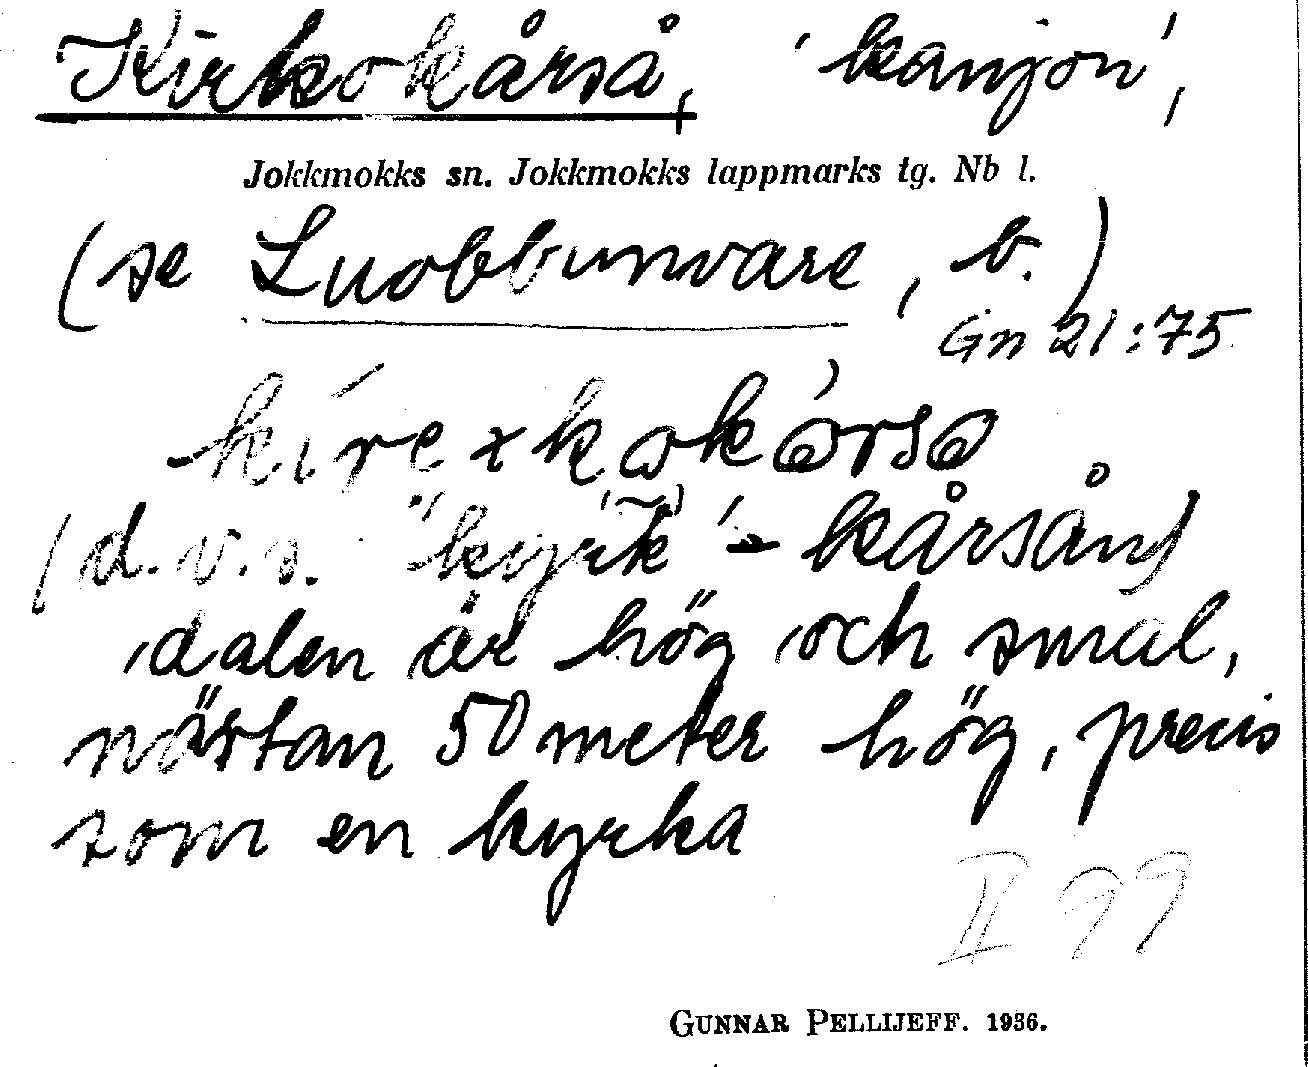 Kirkokårså, 'kanjon',
Jokkmokks sn. Jokkmokks lappmarks tg. Nb l.
(se Luobbunvare, b.)
Gn 21:75
(d.v.s. "kyrk"-kårsån)
dalen är hög och smal,
nästan 50 meter hög, precis
som en kyrka
II 99
GUNNAR PELLIJEFF. 1936.